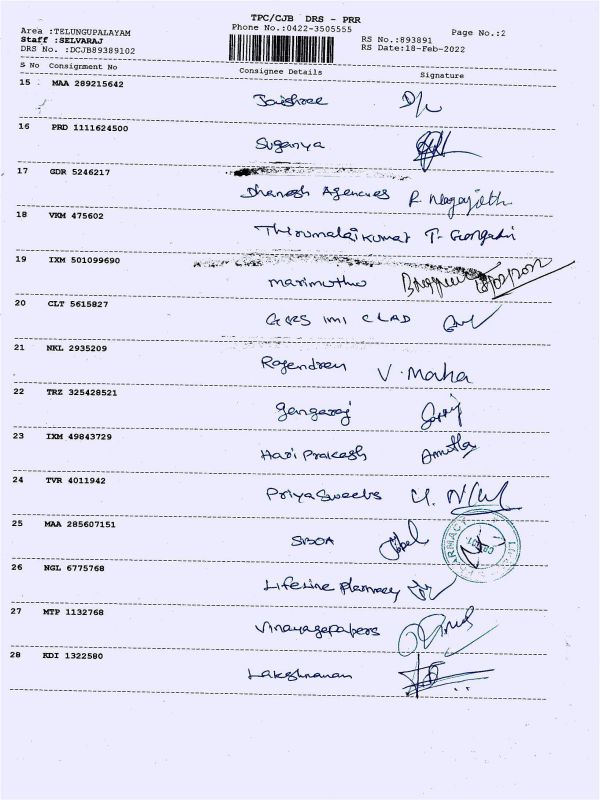 TPC/CJB DRS - PRR
Area :TELUNGUPALAYAM Phone No.:0422-3505555 Page No.:2
Staff :SELVARAJ RS No.:893891
DRS No. :DCJB89389102 RS Date:18-Feb-2022
S No Consignment No Consignee Details Signature
15 MAA 289215642
Jaishree
16 PRD 1111624500
Suganya
17 GDR 5246217
Dhanesh Agencies
18 VKM 475602
Thirumalaikumar
19 IXM 501099690
marimuthu 18/02/2022
20 CLT 5615827
CLAD
21 NKL 2935209
Rajendren V. Maha
22 TRZ 325428521
Gangaraj
23 IXM 49843729
Hari Prakash Amutha
24 TVR 4011942
Priya Sweets
25 MAA 285607151
SIBOA
PHARMACY
26 NGL 6775768
Lifeline pharmacy
27 MTP 1132768
Vinayagapapers
28 KDI 1322580
Lakshmanan